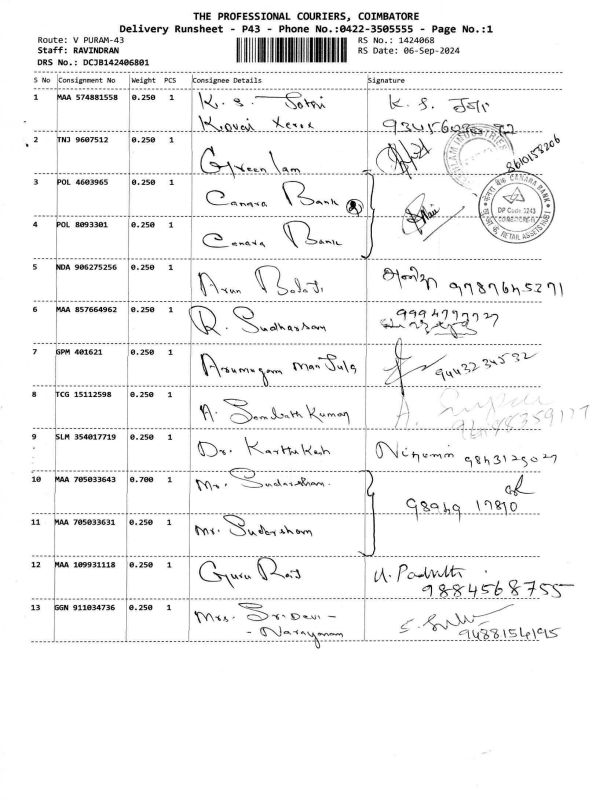 THE PROFESSIONAL COURIERS, COIMBATORE
Delivery Runsheet - P43 - Phone No.:0422-3505555 - Page No.:1
Route: V PURAM-43 RS No.: 1424068
Staff: RAVINDRAN RS Date: 06-Sep-2024
DRS No.: DCJB142406801
S No Consignment No Weight PCS Consignee Details Signature
1 MAA 574881558 0.250 1 K. S. K. S.
Kovai Xerox
2 TNJ 9607512 0.250 1 Green lam 8610153206
3 POL 4603965 0.250 1 Canara Bank
CANARA BANK
DP Code 3243
COIMBATORE
RETAIL ASSETS HUB
4 POL 8093301 0.250 1 Canara Bank
5 NDA 906275256 0.250 1 Arun Balaji 9787645271
6 MAA 857664962 0.250 1 R. Sudharsan
7 GPM 401621 0.250 1 Arumugam Manjula 9443234532
8 TCG 15112598 0.250 1 A. Kumar A.
9 SLM 354017719 0.250 1 Dr. Karthikesh 9843125027
10 MAA 705033643 0.700 1 Mr. Sudarsham. 98949 17810
11 MAA 705033631 0.250 1 Mr. Sudarsham
12 MAA 109931118 0.250 1 Guru Raj
9884568755
13 GGN 911034736 0.250 1 Mrs. Sri Devi -
- Narayanan 9488154195